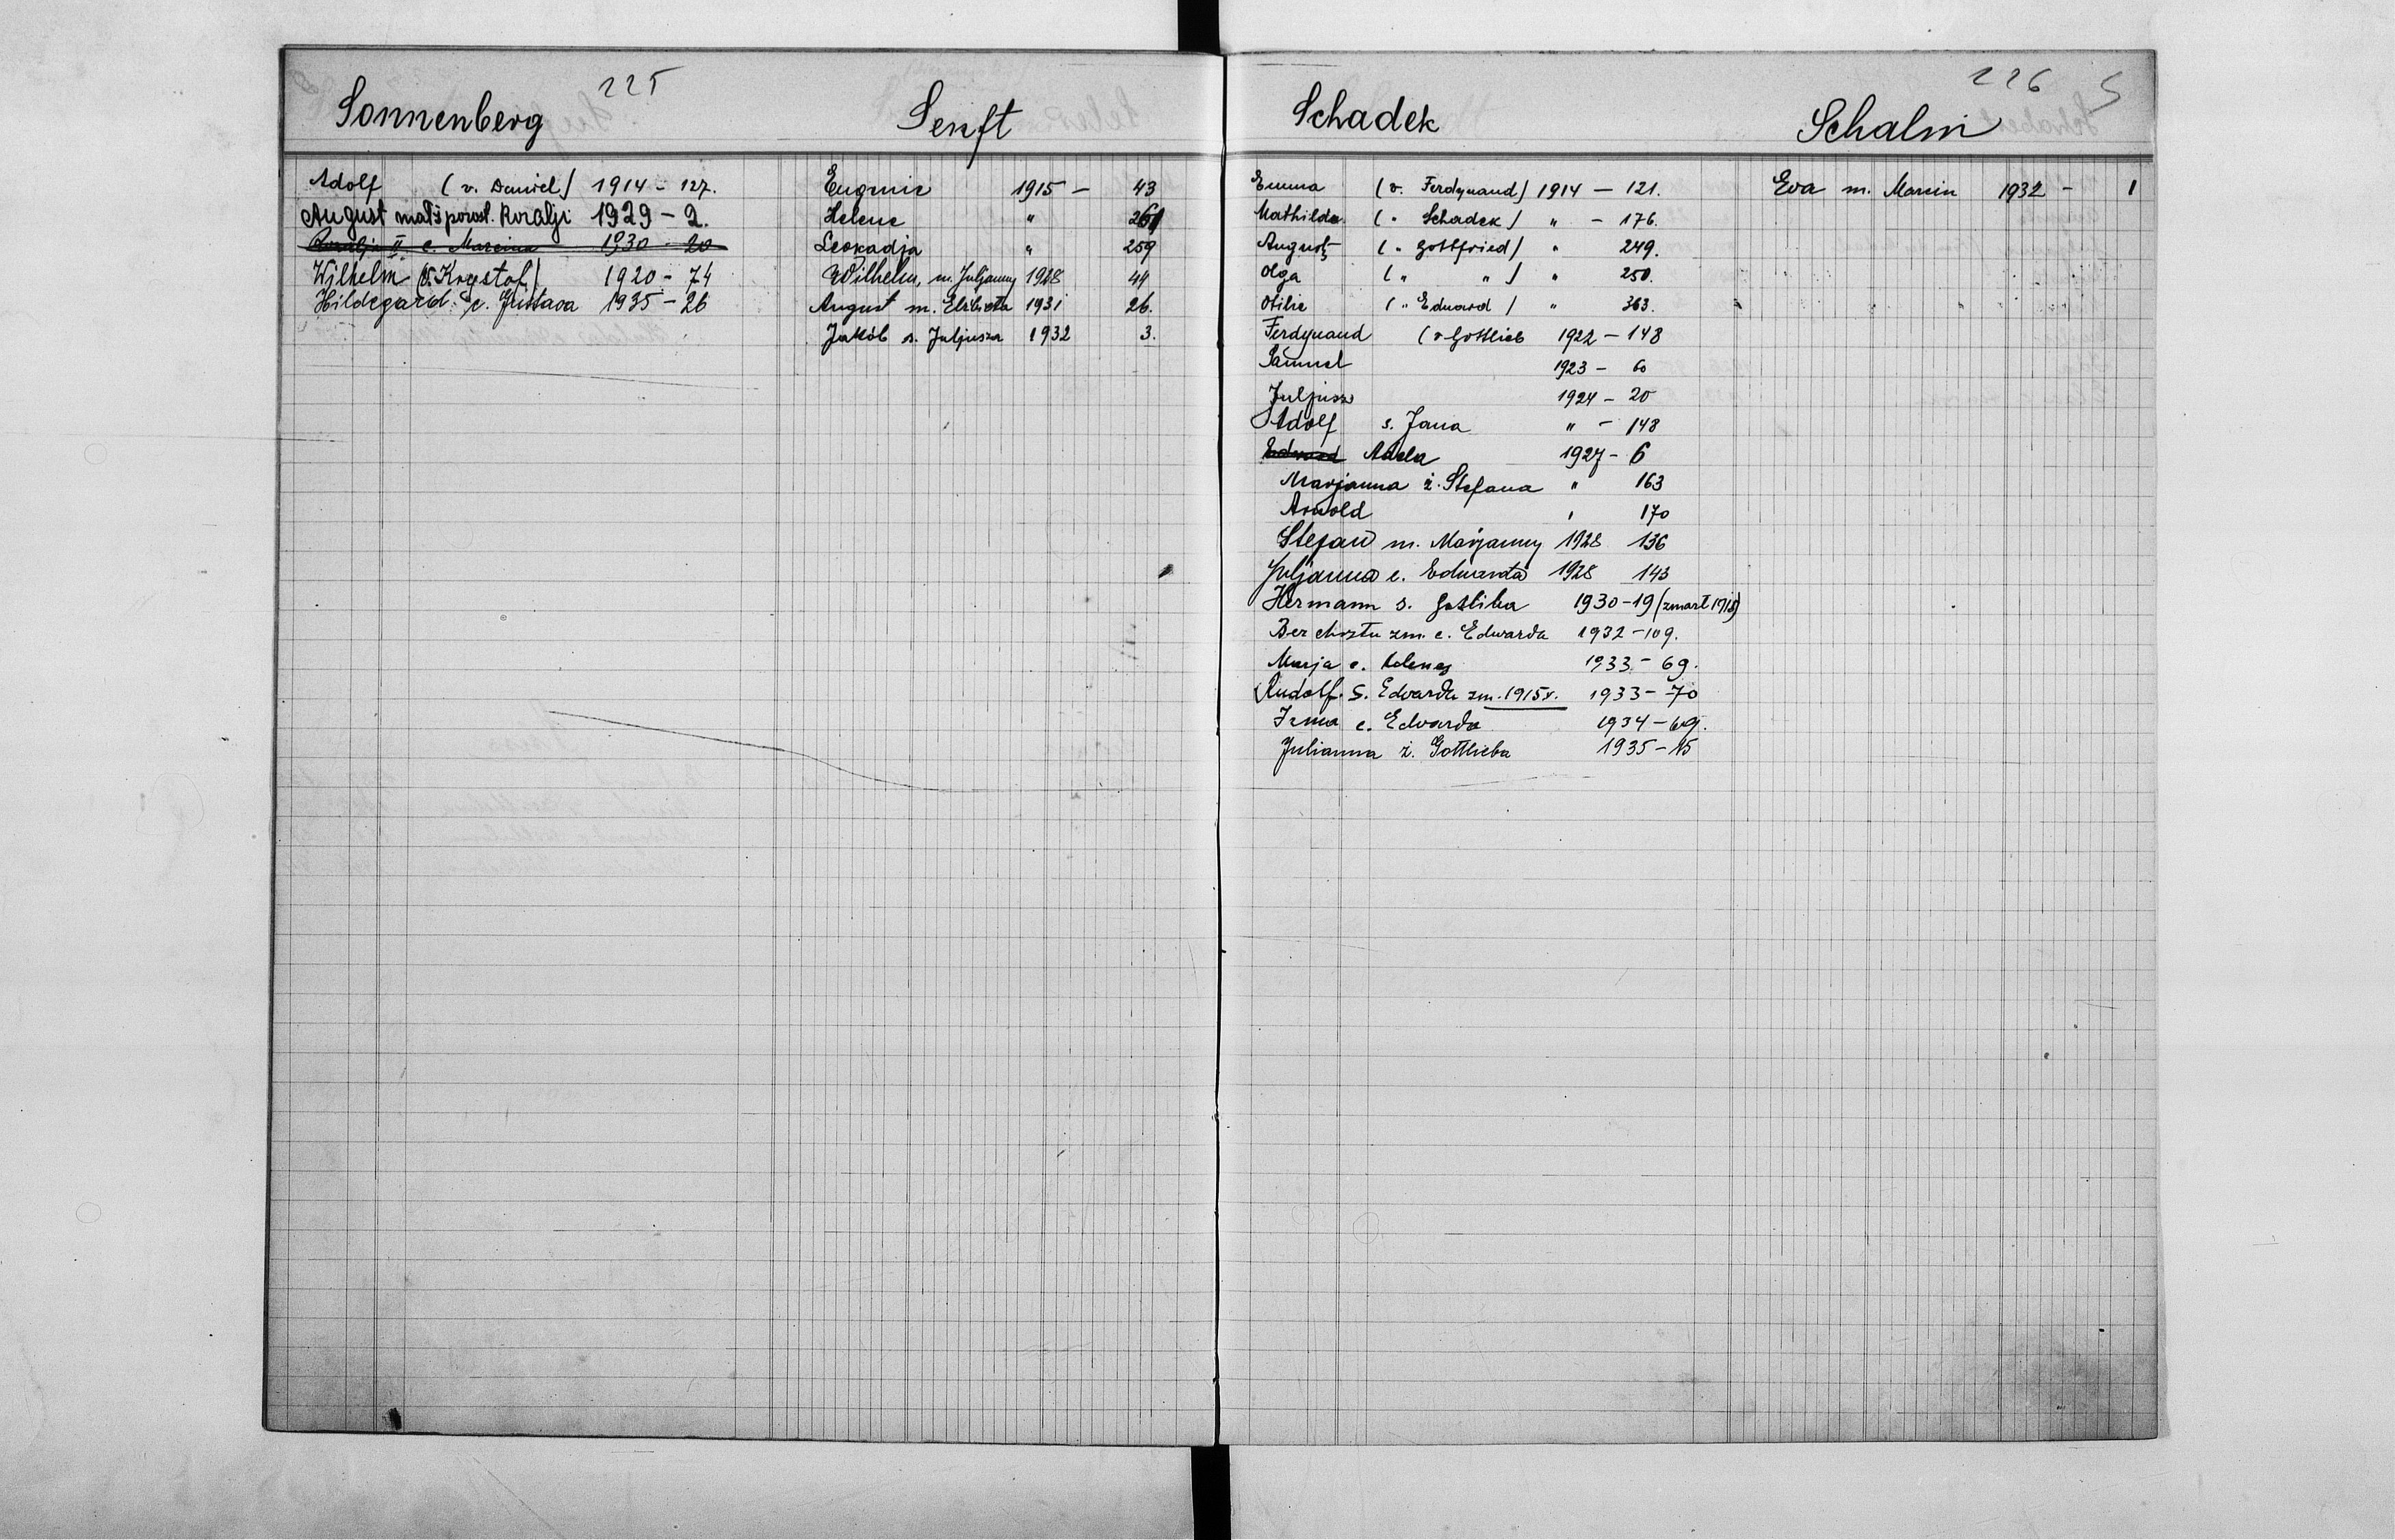 225
Sonnenberg
Adolf (v. Daniel) 1914 - 127.
August małż pozost. Rozalji 1929 - 2.
Rozalja II c. Marcina 1930 - 20
Wilhelm (v. Krystof) 1920 - 74
Hildegard c. Gustava 1935 - 26
Senft
Eugenie 1915 - 43
Helene " 261
Leokadja " 259
Wilhelm, m. Juljanny 1928 44
August m. Elżbieta 1931 26.
Jakób s. Juljusza 1932 3.
226 S
Schadek
Emma (v. Ferdynand) 1914 - 121.
Mathilde (" Schadek) " - 176.
August (" Gottfried) " 249.
Olga (" ") " 250.
Otilie (" Eduard) " 363.
Ferdynand (v Gottlieb 1922 - 148
Samuel 1923 - 60
Juljusz 1924 - 20
Adolf s. Jana " - 148
Edward Adela 1927 - 6
Marjanna ż. Stefana " 163
Arnold " 170
Stefan m. Marjanny 1928 136
Juljanna c. Edwarda 1928 143
Hermann s. Gotliba 1930 - 19 (zmarł 1918)
Bez chrztu zm. c. Edwarda 1932 - 109.
Marja c. 1933 - 69.
Rudolf s. Edwarda zm. 1915 r. 1933 - 70
Irma c. Edwarda 1934 - 69.
Julianna ż. Gottlieba 1935 - 15
Schalm
Eva m. Marcin 1932 - 1